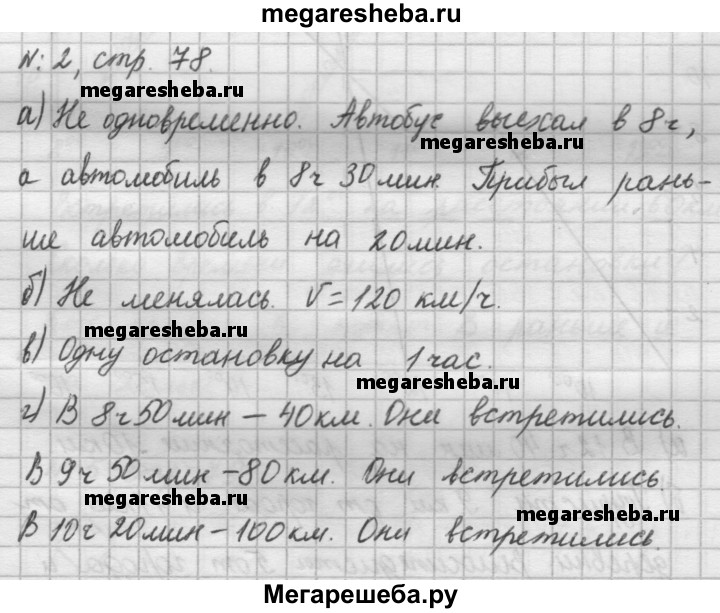 megaresheba.ru
N: 2, стр. 78.
megaresheba.ru
а) Не одновременно. Автобус выехал в 8ч,
megaresheba.ru
а автомобиль в 8ч 30мин. Прибыл рань-
ше автомобиль на 20мин.
б) Не менялась. V=120 км/ч.
megaresheba.ru
в) Одну остановку на 1час.
megaresheba.ru
г) В 8ч50мин – 40км. Они встретились.
В 9ч 50мин –80км. Они встретились.
megaresheba.ru
В 10ч 20мин–100км. Они встретились.
megaresheba.ru
Мегарешеба.ру